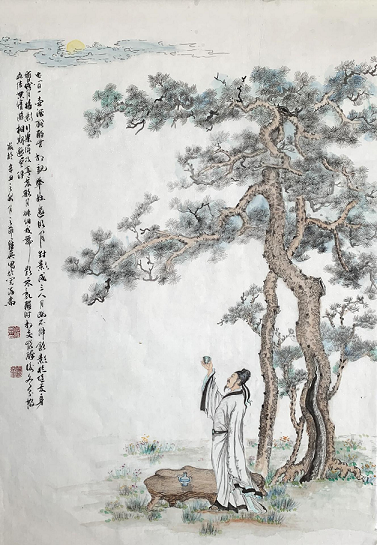 花間一壺酒獨酌無相親舉杯邀明月對影成三人月既不解飲影徒隨我身
暫伴月將影行樂須及春我歌月徘徊我舞影零亂醒時同交歡醉後各分散
永結無情遊相期邈雲漢
辛丑之秋月